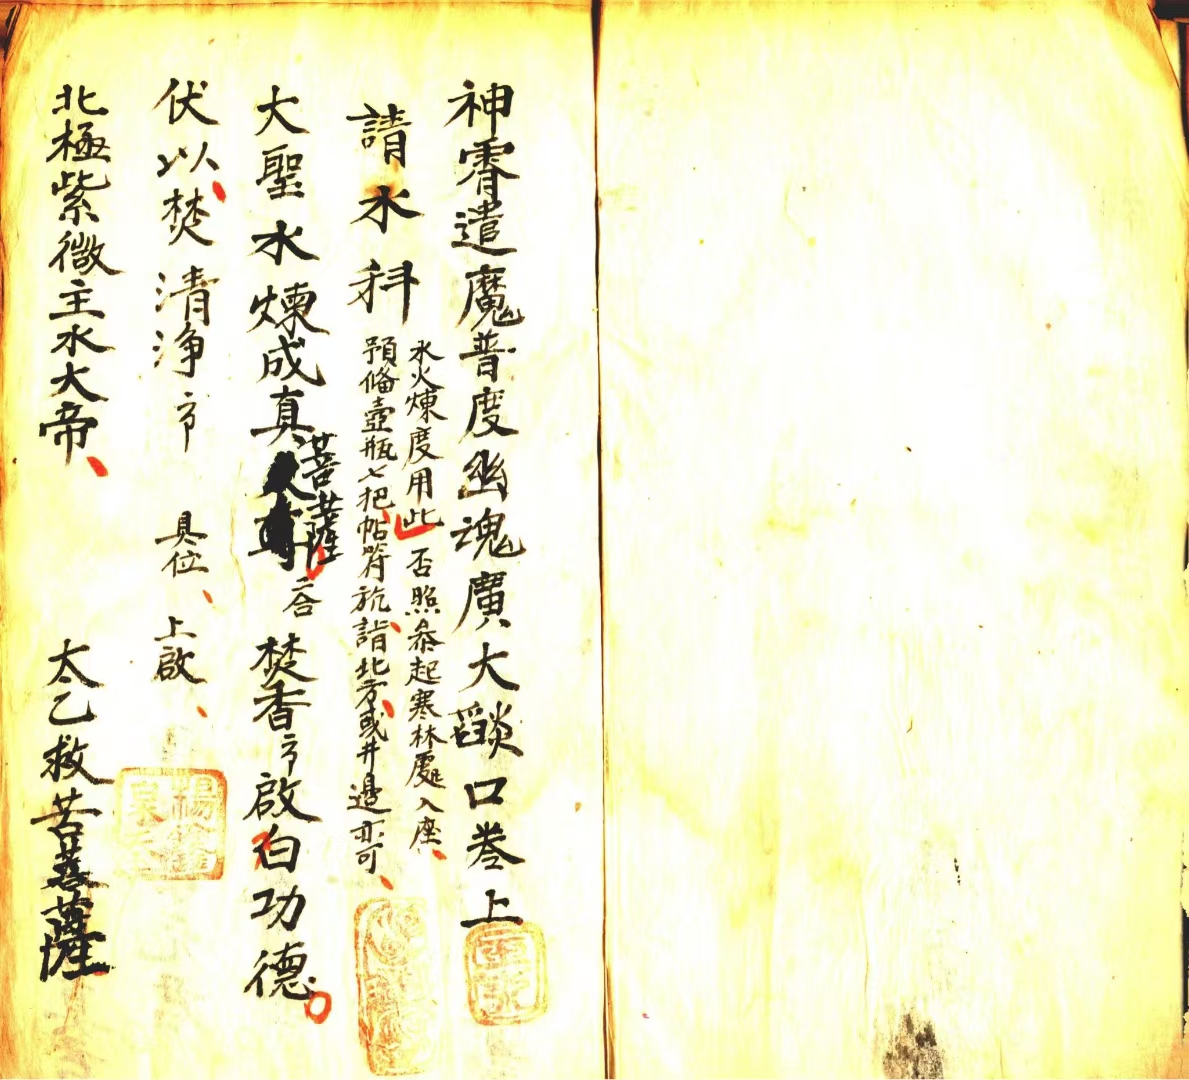 神霄遣魔普度幽魂廣大燄口卷上
請水科
水火煉度用此 否照叅起寒林處入座
預偹壺瓶七把帖符䉺詣北方或井邊亦可
大聖水煉成真菩薩 二合 焚香 啟白功德
伏以焚清浄 具位 上啟
北極紫微主水大帝 太乙救苦菩薩